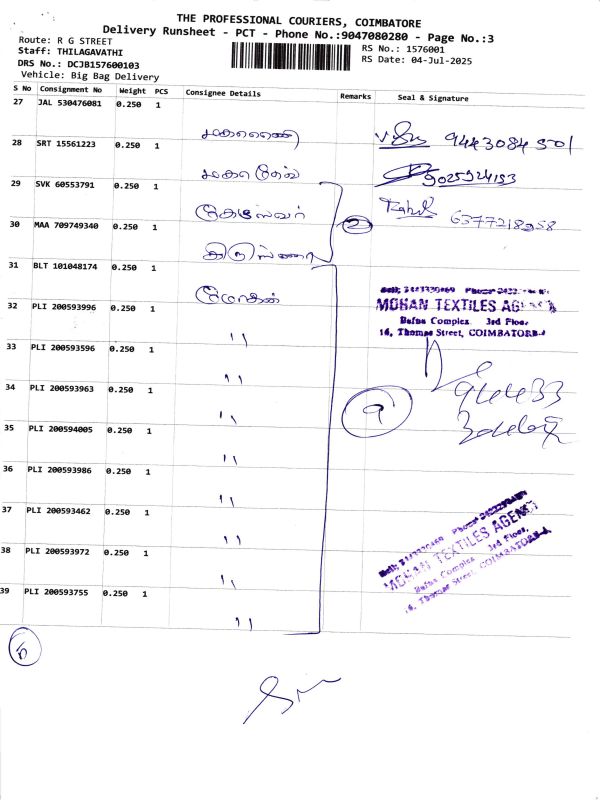 THE PROFESSIONAL COURIERS, COIMBATORE
Delivery Runsheet - PCT - Phone No.:9047080280 - Page No.:3
Route: R G STREET
RS No.: 1576001
Staff: THILAGAVATHI
RS Date: 04-Jul-2025
DRS No.: DCJB157600103
Vehicle: Big Bag Delivery
S No Consignment No Weight PCS Consignee Details Remarks Seal & Signature
27 JAL 530476081 0.250 1
28 SRT 15561223 0.250 1
9025924193
29 SVK 60553791 0.250 1
Rahul 6377218958
2
30 MAA 709749340 0.250 1
31 BLT 101048174 0.250 1 மோகன்
MOHAN TEXTILES AGENCY
Bafna Complex 3rd Floor,
16, Thomas Street, COIMBATORE-1
32 PLI 200593996 0.250 1 "
33 PLI 200593596 0.250 1 "
34 PLI 200593963 0.250 1 "
9
94433
35 PLI 200594005 0.250 1 "
36 PLI 200593986 0.250 1 "
37 PLI 200593462 0.250 1 "
MOHAN TEXTILES AGENCY
Bafna Complex 3rd Floor,
16, Thomas Street, COIMBATORE-1
38 PLI 200593972 0.250 1 "
39 PLI 200593755 0.250 1 "